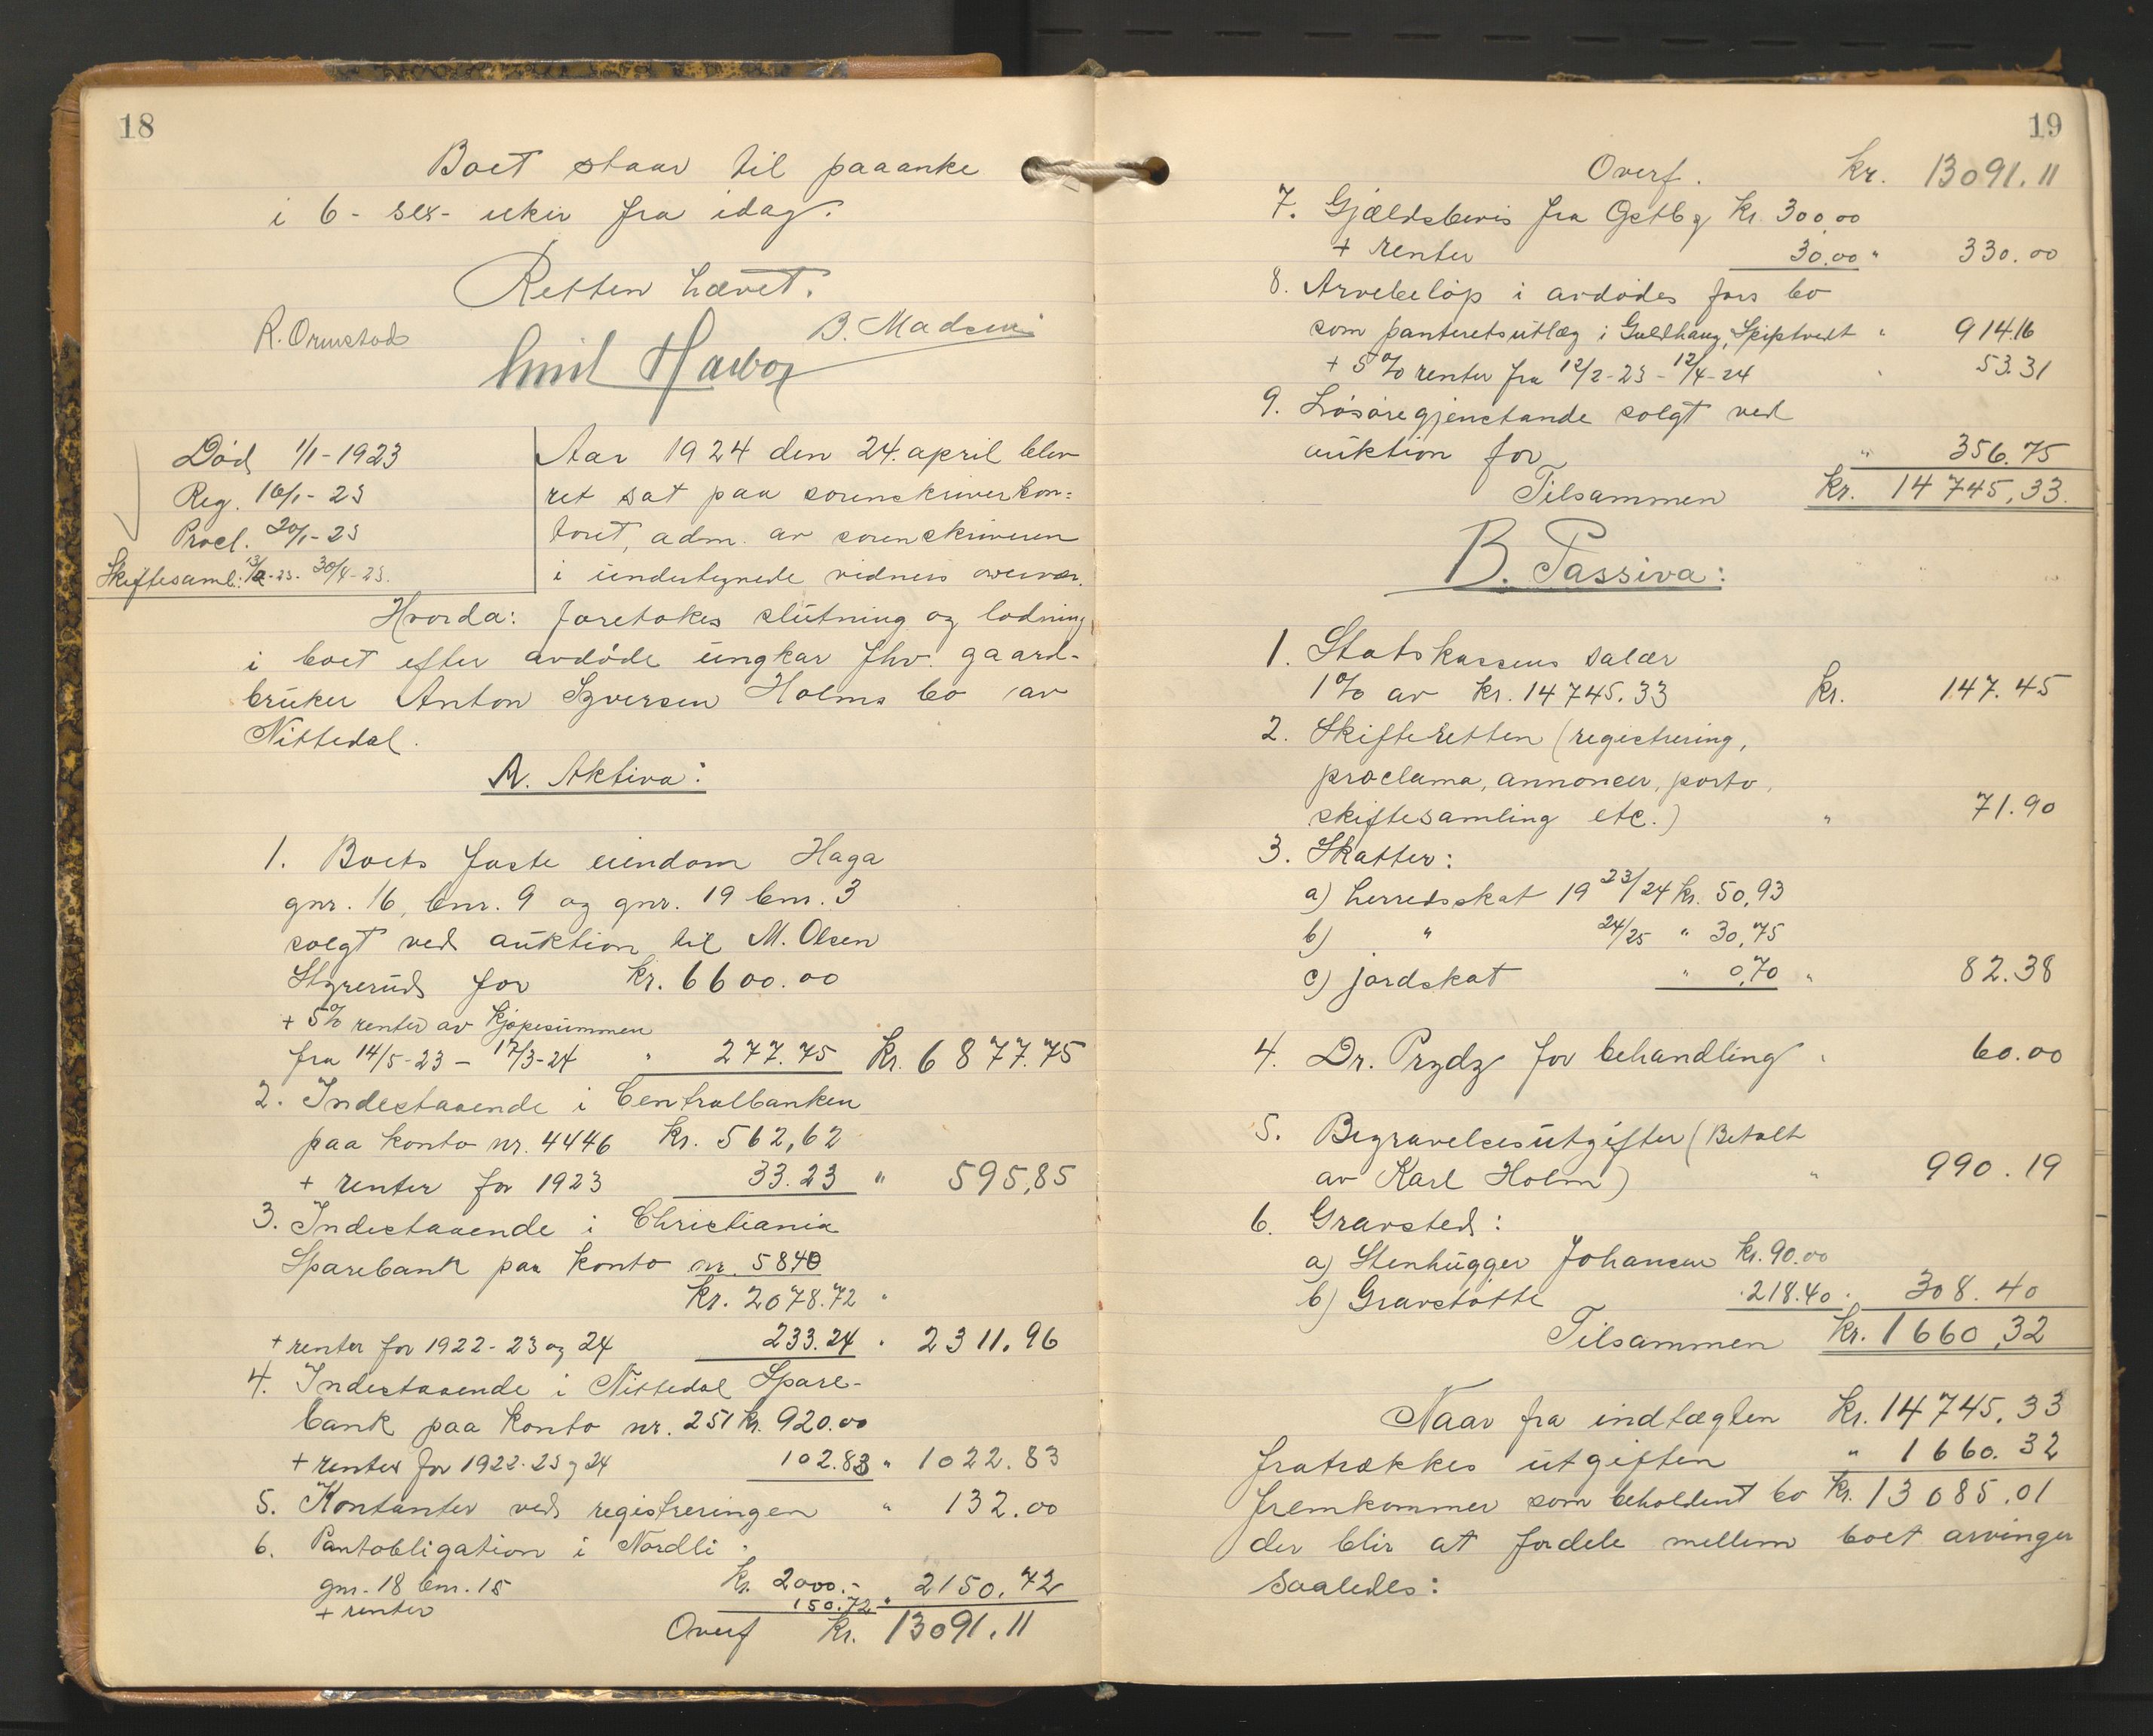 18
Boet staar til paaanke
i 6 - sex - uker fra idag.
Retten hævet.
R. Ormestad
B. Madsen
Emil
Død 1/1 - 1923
Reg. 16/1 - 23
Procl. 20/1 - 23
Skiftesaml: 13/2-23. 30/4-23.
Aar 1924 den 24. april blev
ret sat paa sorenskriverkon=
toret, adm. av sorenskriveren
i undertegnede vidners overvær.
Hvorda: foretokes slutning og lodning
i boet efter avdøde ungkar fhv. gaard-
bruker Anton Syversen Holms bo av
Nittedal.
A. Aktiva:
1. Boets faste eiendom Haga
gnr. 16, bnr. 9 og gnr. 19 bnr. 3
solgt ved auktion til M. Olsen
Styrerud for kr. 6600.00
+ 5% renter av kjøpesummen
fra 14/5-23 - 17/3-24 " 277.75 kr. 6877.75
2. Indestaaende i Centralbanken
paa konto nr. 4446 kr. 562,62
+ renter for 1923 33.23 " 595,85
3. Indestaaende i Christiania
Sparebank paa konto nr. 5840
kr. 2078.72 "
+ renter for 1922 - 23 og 24 233.24 " 2311.96
4. Indestaaende i Nittedal Spare-
bank paa konto nr. 251 kr. 920.00
+ renter for 1922-23 og 24 102.83 " 1022.83
5. Kontanter ved registreringen " 132.00
6. Pantobligation i Nordli
gnr. 18 bnr. 15 kr. 2000.- 2150.72
+ renter 150.72 "
Overf kr. 13091.11
19
Overf. kr. 13091.11
7. Gjældsbevis fra Østby kr. 300.00
+ renter 30.00 " 330.00
8. Arvebeløp i avdødes fars bo
som panteretsutlæg i Guldhaug, Spiptvedt " 914.16
+ 5% renter fra 12/2-23 - 12/4-24 " 53.31
9. Løsøregjenstande solgt ved
auktion for " 356.75
Tilsammen kr. 14745,33.
B. Passiva:
1. Statskassens salær
1% av kr. 14745.33 kr. 147.45
2. Skifteretten (registrering,
proclama, annoncer, porto,
skiftesamling etc.) " 71.90
3. Skatter:
a) herredsskat 1923/24 kr. 50,93
b) " 24/25 " 30,75
c) jordskat " 0,70 " 82.38
4. Dr. Prydz for behandling " 60.00
5. Begravelsesutgifter (Betalt
av Karl Holm) " 990.19
6. Gravsted:
a) Stenhugger Johansen kr. 90.00
b) Gravstøtte " 218.40 " 308.40
Tilsammen kr. 1660,32
Naar fra indtægten kr. 14745.33
fratrækkes utgiften " 1660.32
fremkommer som beholdent bo kr. 13085.01
der blir at fordele mellem boet arvinger
saaledes: